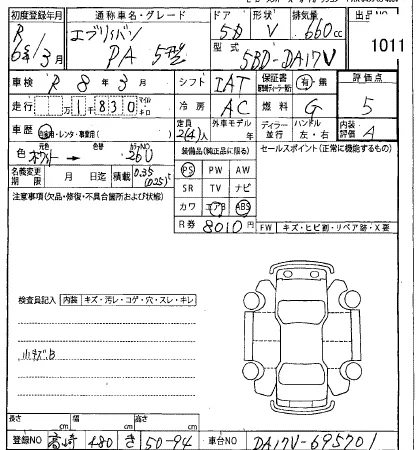 初度登録年月 通称車名・グレード ドア 形状 排気量 出品NO
R 6年/3月 エブリィバン PA 5D V 660cc 1011
型式 5BD-DA17V
車検 R 8年 3月 シフト IAT 保証書 有・無 評価点
走行 1830 マイル キロ 冷房 AC 燃料 G 5
車歴 自家用・レンタ・事業用( ) 定員 2(4)人 外車モデル ディーラー 並行 ハンドル 左・右 内装評価 A
色 元色 ホワイト 色替 カラーNO 26U 装備品(純正品に限る) セールスポイント(正常に機能するもの)
名義変更期限 月 日迄 積載 0.35 (0.25)t PS PW AW
SR TV ナビ
注意事項(欠品・修復・不具合箇所および状態) カワ エアB ABS
R券 8010円 FW キズ・ヒビ割・リペア跡・X要
検査員記入 内装 キズ・汚レ・コゲ・穴・スレ・キレ
小キズB
長さ cm 幅 cm 高さ cm
登録NO 高崎 480 き 50-94 車台NO DA17V-695701